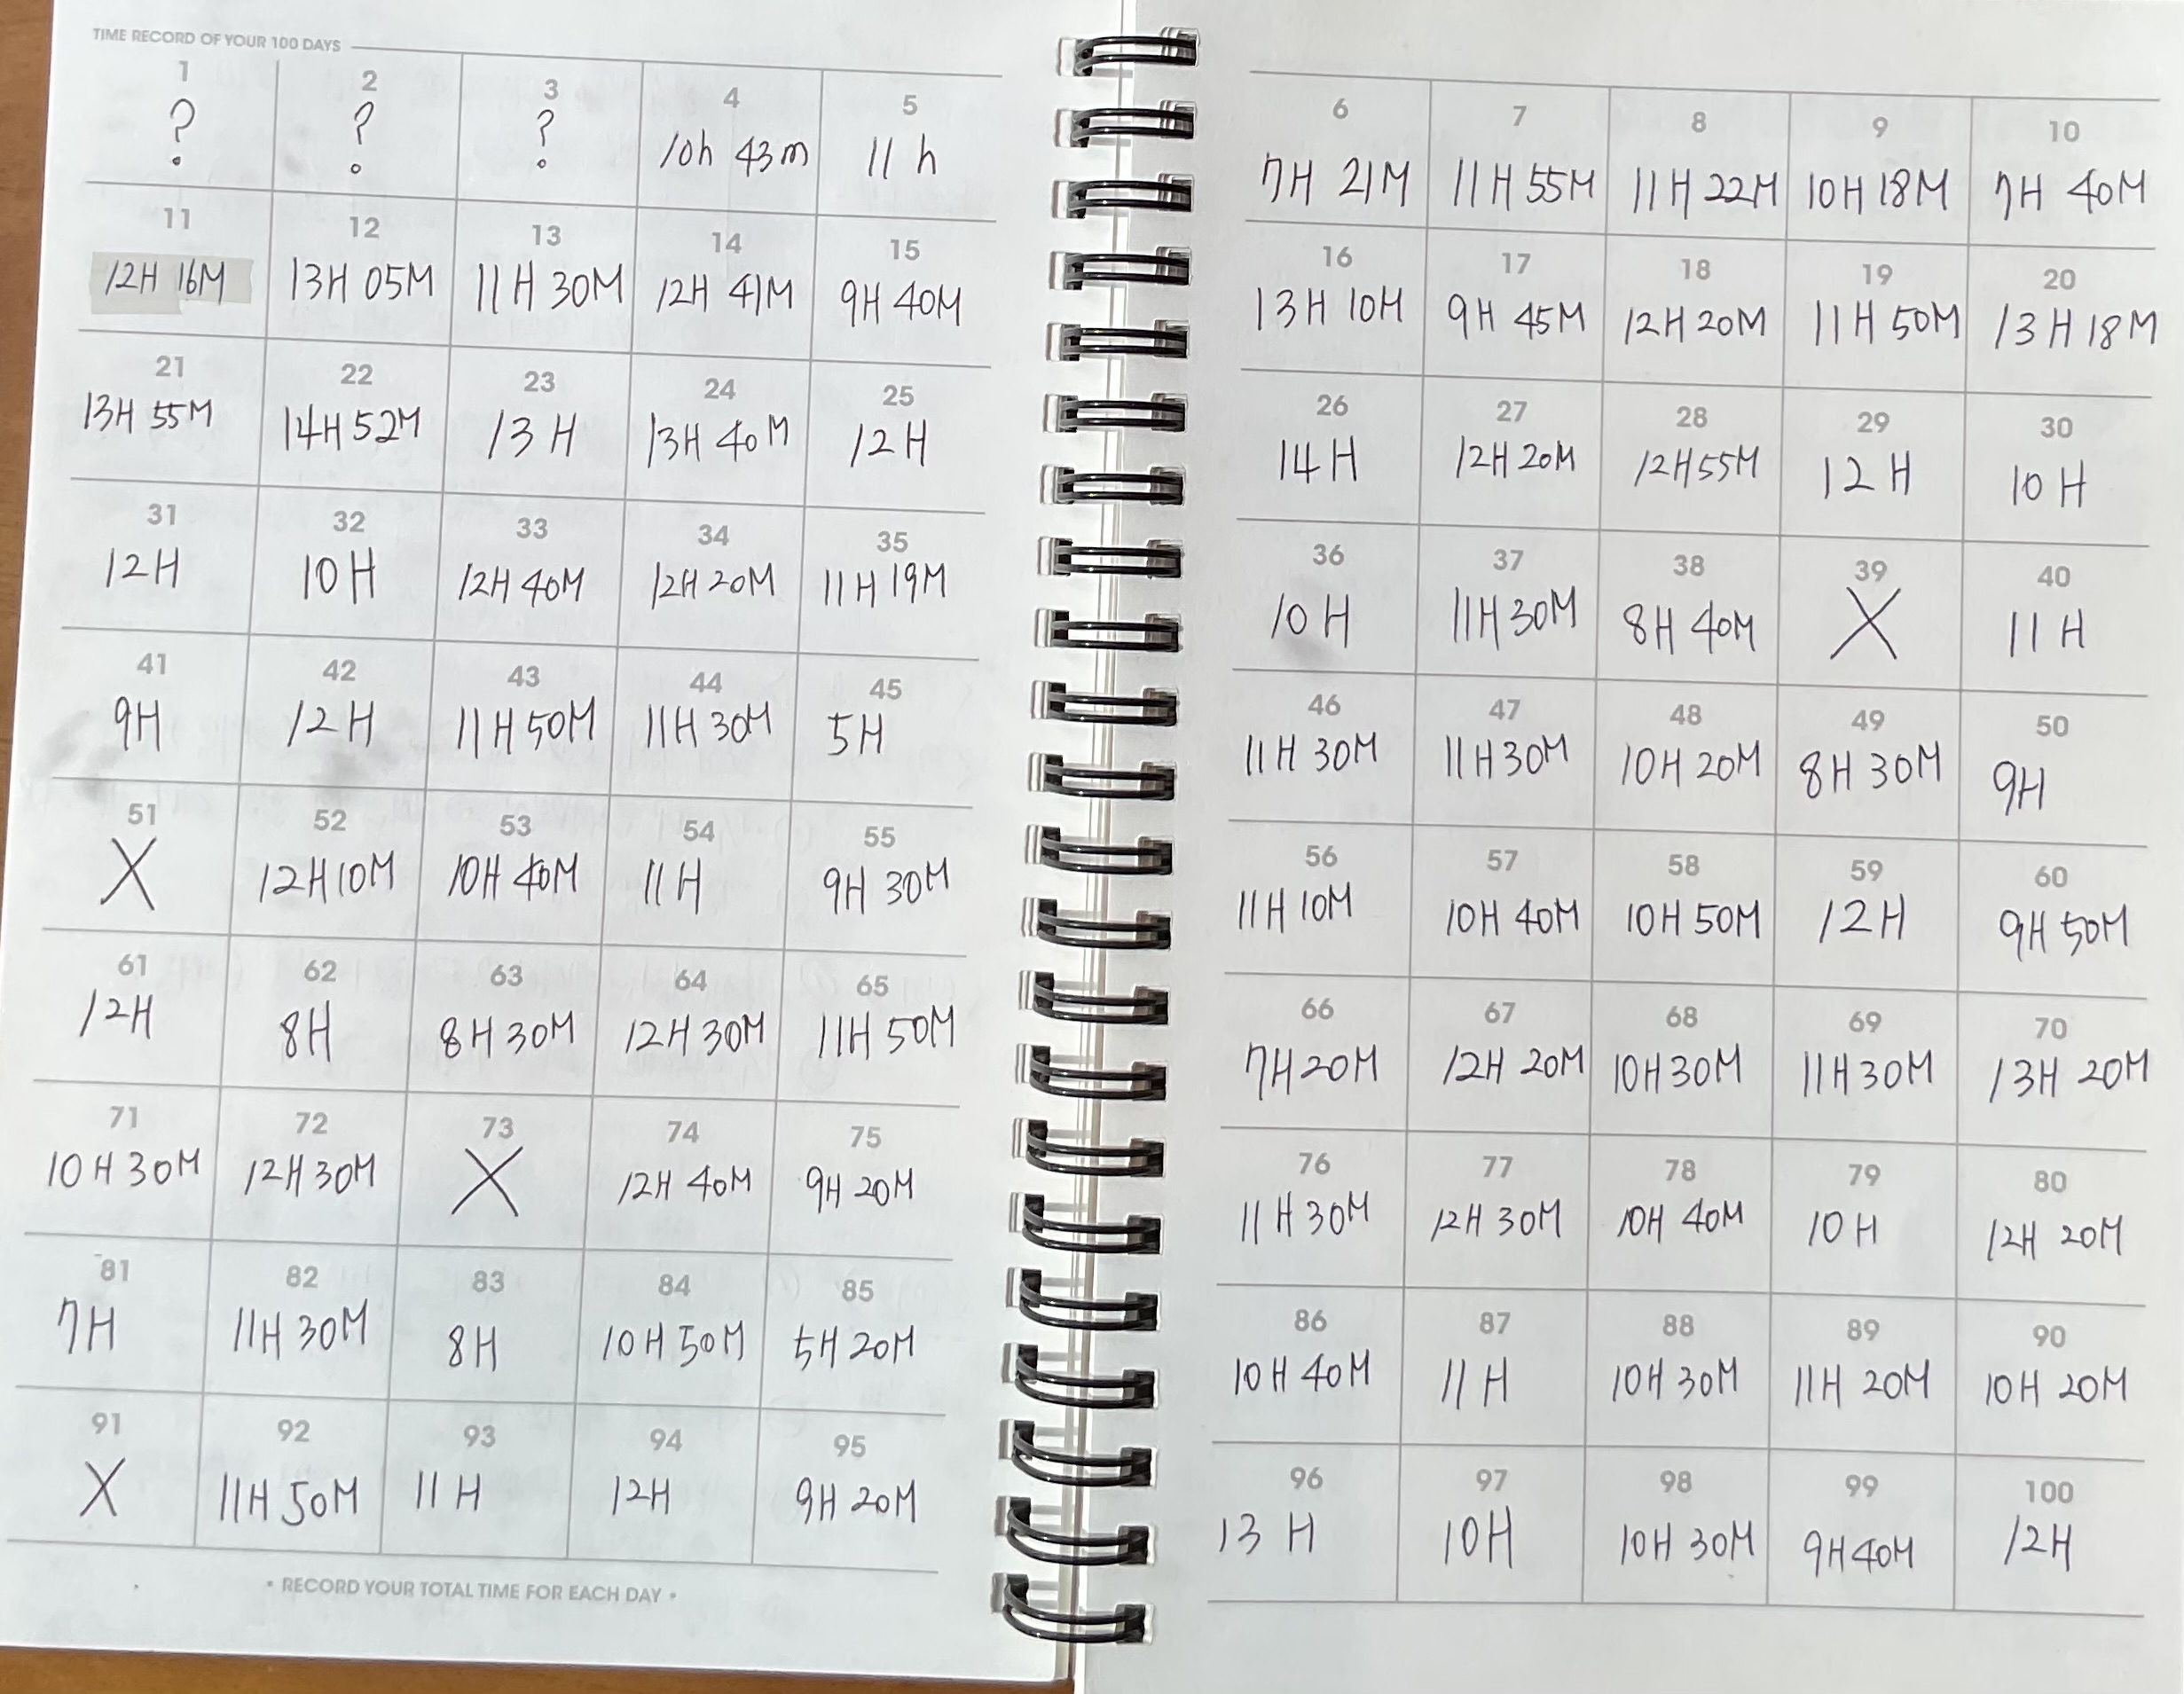 TIME RECORD OF YOUR 100 DAYS
1 2 3 4 5
? ? ? 10h 43m 11 h
6 7 8 9 10
7H 21M 11H 55M 11H 22M 10H 18M 7H 40M
11 12 13 14 15
12H 16M 13H 05M 11H 30M 12H 41M 9H 40M
16 17 18 19 20
13H 10H 9H 45M 12H 20M 11H 50M 13H 18M
21 22 23 24 25
13H 55M 14H 52M 13H 13H 40M 12H
26 27 28 29 30
14H 12H 20M 12H 55M 12H 10H
31 32 33 34 35
12H 10H 12H 40M 12H 20M 11H 19M
36 37 38 39 40
10H 11H 30M 8H 40M X 11H
41 42 43 44 45
9H 12H 11H 50M 11H 30M 5H
46 47 48 49 50
11H 30M 11H 30M 10H 20M 8H 30M 9H
51 52 53 54 55
X 12H 10M 10H 40M 11H 9H 30M
56 57 58 59 60
11H 10M 10H 40M 10H 50M 12H 9H 50M
61 62 63 64 65
12H 8H 8H 30M 12H 30M 11H 50M
66 67 68 69 70
7H 20M 12H 20M 10H 30M 11H 30M 13H 20M
71 72 73 74 75
10H 30M 12H 30M X 12H 40M 9H 20M
76 77 78 79 80
11H 30M 12H 30M 10H 40M 10H 12H 20M
81 82 83 84 85
7H 11H 30M 8H 10H 50M 5H 20M
86 87 88 89 90
10H 40M 11H 10H 30M 11H 20M 10H 20M
91 92 93 94 95
X 11H 50M 11H 12H 9H 20M
96 97 98 99 100
13H 10H 10H 30M 9H 40M 12H
• RECORD YOUR TOTAL TIME FOR EACH DAY •